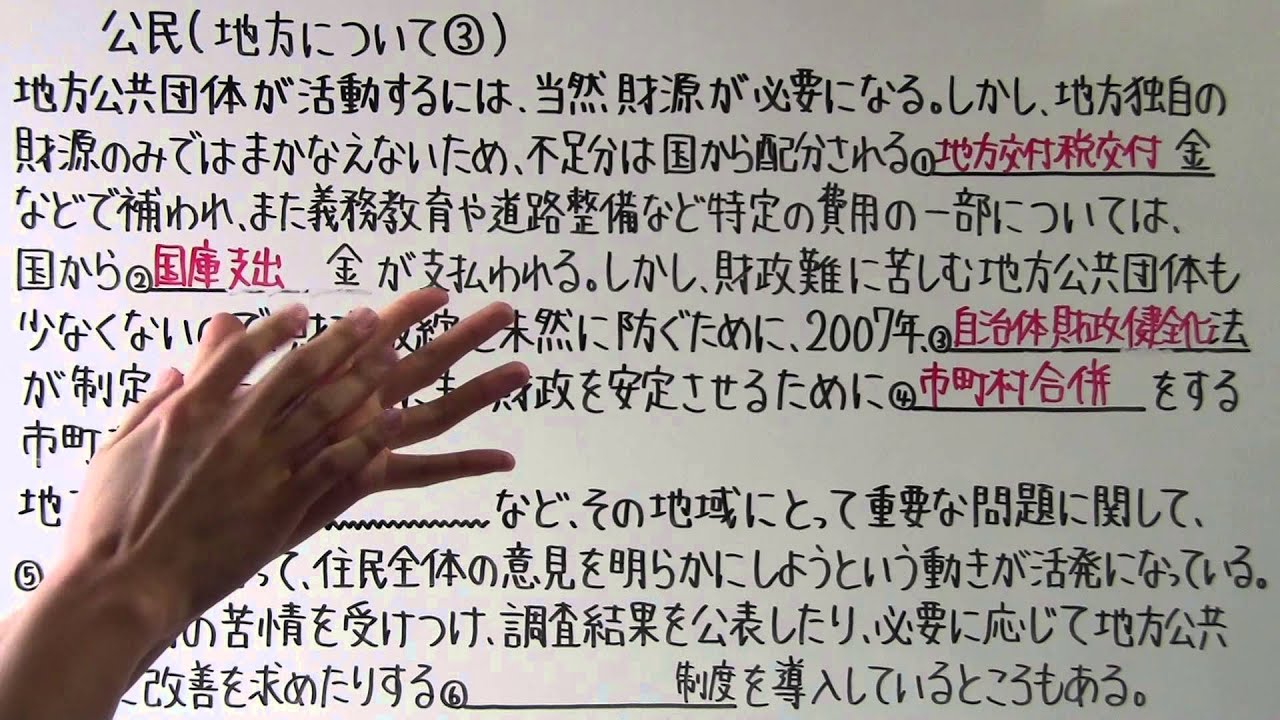 公民(地方について③)
地方公共団体が活動するには、当然財源が必要になる。しかし、地方独自の
財源のみではまかなえないため、不足分は国から配分される①地方交付税交付 金
などで補われ、また義務教育や道路整備など特定の費用の一部については、
国から②国庫支出 金 が支払われる。しかし、財政難に苦しむ地方公共団体も
少なくないので 未然に防ぐために、2007年、③自治体財政健全化法
が制定 財政を安定させるために④市町村合併 をする
市町
地 など、その地域にとって重要な問題に関して、
⑤ って、住民全体の意見を明らかにしようという動きが活発になっている。
の苦情を受けつけ、調査結果を公表したり、必要に応じて地方公共
に改善を求めたりする⑥ 制度を導入しているところもある。